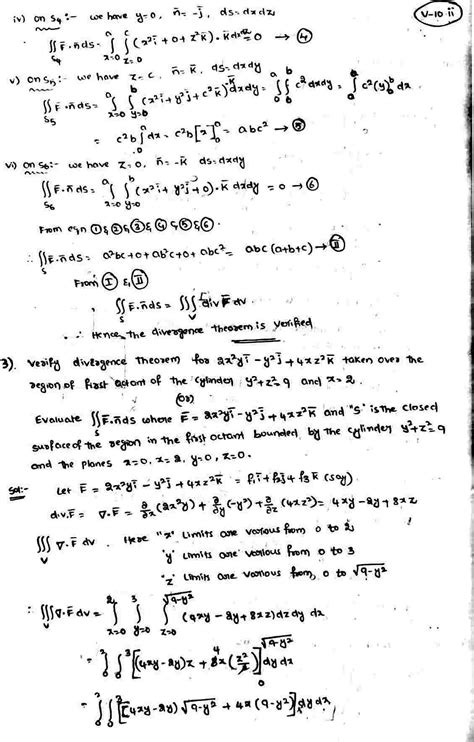 V-10.ii
iv) on S₄:- we have y=0, n̄=-j̄, ds=dxdz
∬_{S₄} F̄.n̄ds = ∫_{x=0}^{a} ∫_{z=0}^{c} (x²ī+0+z²k̄).k̄dxdz=0 → ④
v) on S₅:- we have z=c, n̄=k̄, ds=dxdy
∬_{S₅} F̄.n̄ds = ∫_{x=0}^{a} ∫_{y=0}^{b} (x²ī+y²j̄+c²k̄).k̄dxdy = ∫_0^a ∫_0^b c²dxdy = ∫_0^a c²(y)_0^b dx
= c²b ∫_0^a dx = c²b[x]_0^a = abc² → ⑤
vi) on S₆:- we have z=0, n̄=-k̄ ds=dxdy
∬_{S₆} F̄.n̄ds = ∫_{x=0}^{a} ∫_{y=0}^{b} (x²ī+y²j̄+0).k̄ dxdy = 0 → ⑥
From eqn ①&②&③&④&⑤&⑥.
∴ ∬_S F̄.n̄ds = a²bc+0+ab²c+0+abc² = abc(a+b+c) → Ⅱ
From Ⅰ & Ⅱ
∬_S F̄.n̄ds = ∭_V div F̄ dv.
∴ Hence the divergence theorem is verified
3). Verify divergence Theorem for 2x²yī-y²j̄+4xz²k̄ taken over the
region of first octant of the cylinder y²+z²=9 and x=2.
(or)
Evaluate ∬_S F̄.n̄ds where F̄=2x²yī-y²j̄+4xz²k̄ and "S" is the closed
surface of the region in the first octant bounded by the cylinder y²+z²=9
and the planes x=0, x=2, y=0, z=0.
Sol:- Let F̄=2x²yī-y²j̄+4xz²k̄ = f₁ī+f₂j̄+f₃k̄ (say)
div.F̄ = ∇.F̄ = ∂/∂x(2x²y)+∂/∂y(-y²)+∂/∂z(4xz²) = 4xy-2y+8xz
∭_V ∇.F̄ dv. Here "x" limits are various from 0 to 2
'y' limits are various from 0 to 3
"z" limits are various from, 0 to √9-y²
∴ ∭_V ∇.F̄dv = ∫_{x=0}^{2} ∫_{y=0}^{3} ∫_{z=0}^{√9-y²} (4xy-2y+8xz)dzdydx
= ∫_0^2 ∫_0^3 [(4xy-2y)z+8x(z²/2)]_0^{√9-y²} dydx
= ∫_0^2 ∫_0^3 [(4xy-2y)√9-y²+4x(9-y²)]dydx